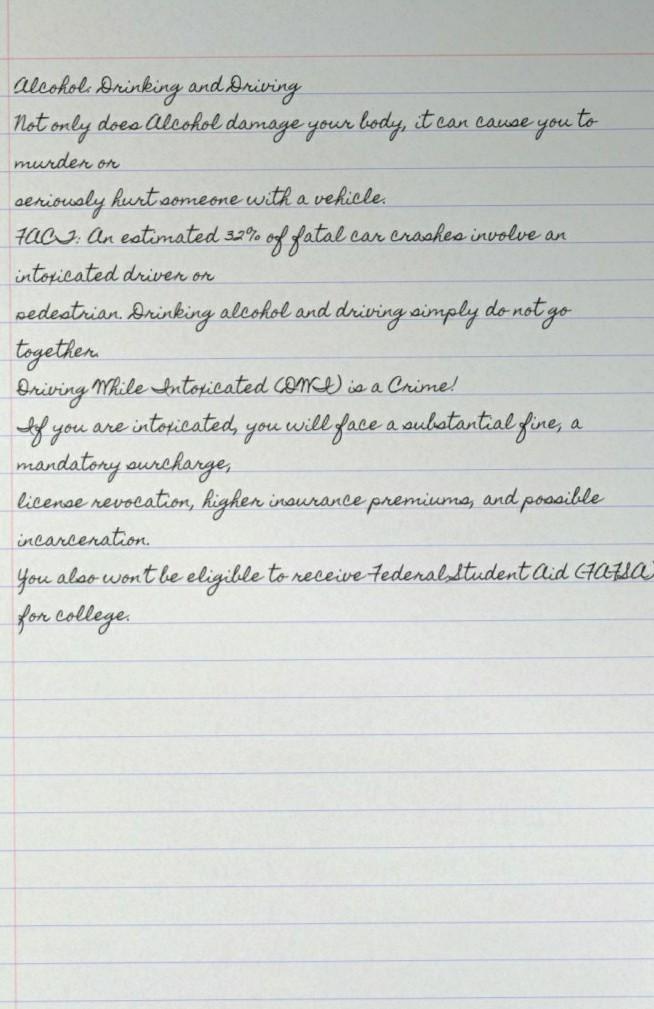 Alcohol: Drinking and Driving
Not only does Alcohol damage your body, it can cause you to
murder or
seriously hurt someone with a vehicle.
FACT: An estimated 32% of fatal car crashes involve an
intoxicated driver or
pedestrian. Drinking alcohol and driving simply do not go
together.
Driving While Intoxicated (DWI) is a Crime!
If you are intoxicated, you will face a substantial fine, a
mandatory surcharge,
license revocation, higher insurance premiums, and possible
incarceration.
You also won't be eligible to receive Federal Student Aid (FAFSA)
for college.